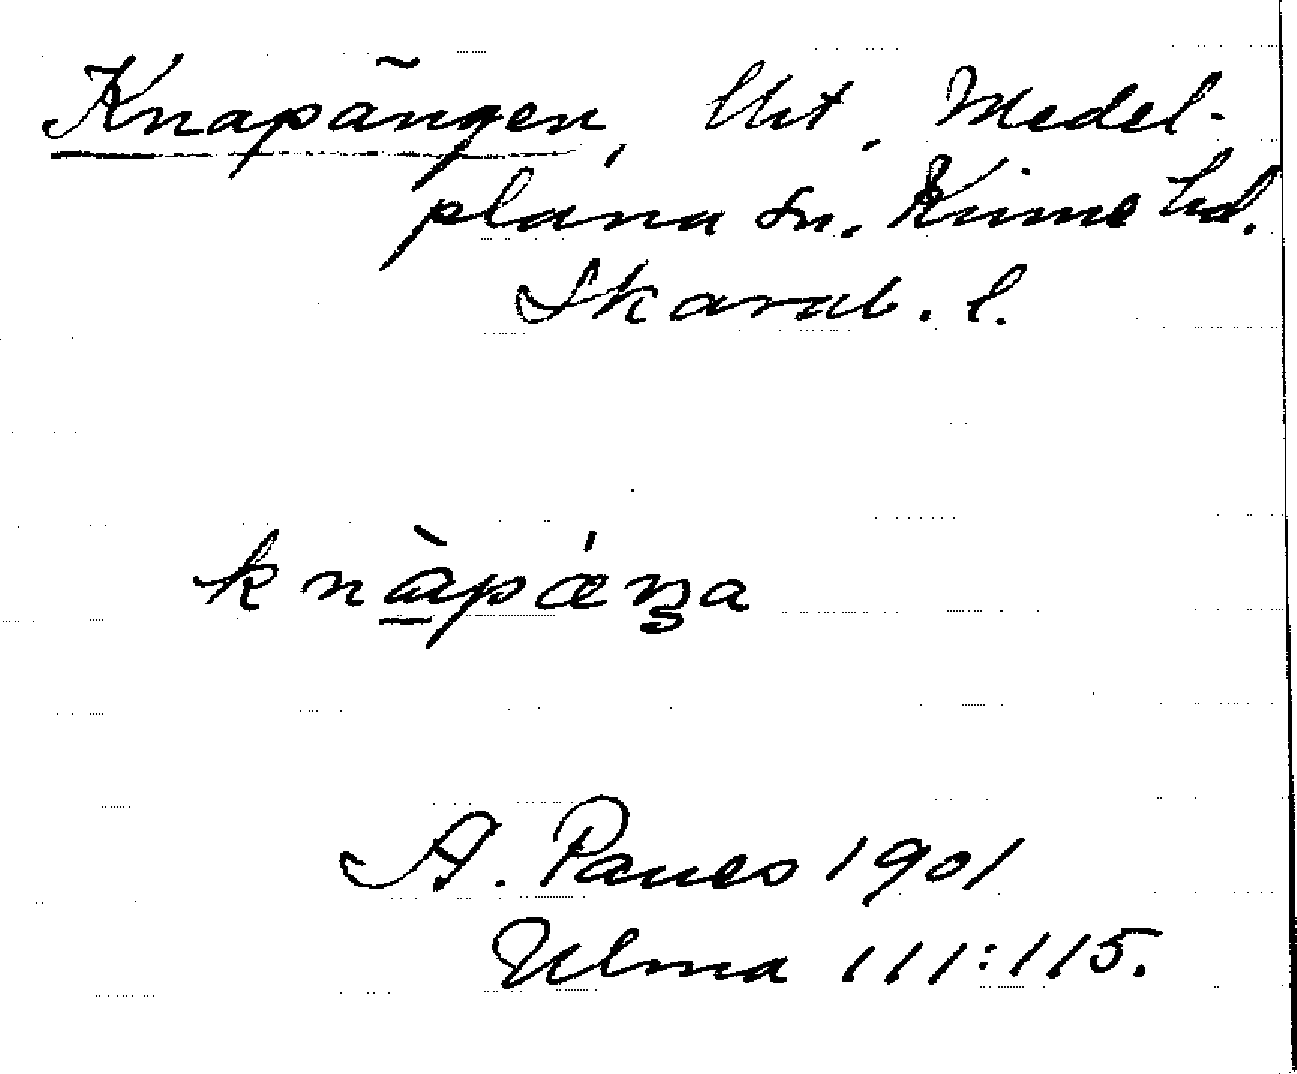 Knapängen, Urt, Medel-
plana sn. Kinne hd.
Skarab. l.
knàpǽŋa
A. Paues 1901
Ulma 111:115.